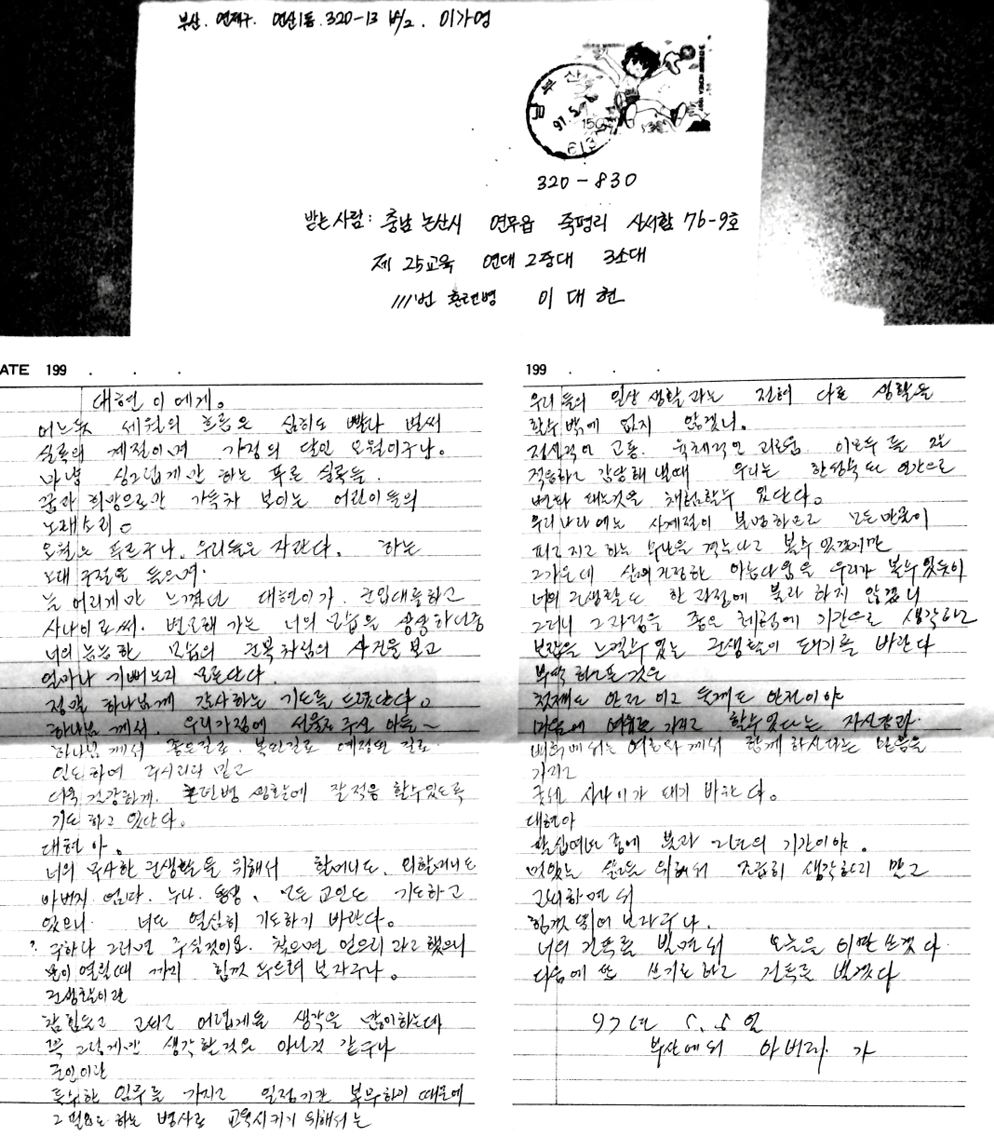 부산. 연제구. 연산1동. 320-13 이가영
부산
97.5.
613
320-830
받는사람: 충남 논산시 연무읍 죽평리 사서함 76-9호
제 25교육 연대 2중대 3소대
111번 훈련병 이대현
ATE 199 . . .
대현이에게.
어느듯 세월의 흐름은 심히도 빨라 벌써
실록의 계절이며 가정의 달인 오월이구나.
마냥 싱그럽게만 하는 푸른 실록들.
꿈과 희망으로만 가득차 보이는 어린이들의
노래소리.
오월은 푸르구나. 우리들은 자란다. 하는
노래 구절을 들으며.
늘 어리게만 느꼈던 대현이가. 군입대를하고
사나이로써. 변모해 가는 너의 모습을 상상하던중
너의 늠늠한 모습의 군복차림의 사진을 보고
얼마나 기뻐는지 모른단다.
정말 하나님께 감사하는 기도를 드렸단다.
하나님께서. 우리가정에 선물로 주신 아들~
하나님께서 좋은길로. 복된길로 예정된 길로.
인도하여 주시리라 믿고
더욱 건강하게. 훈련병 생활에 잘적응 할수있도록
기도하고 있단다.
대현아.
너의 무사한 군생활을 위해서 할머니도. 외할머니도
아버지. 엄마. 누나. 동생. 모든 교인도 기도하고
있으니 너도 열심히 기도하기 바란다.
구하라 그러면 주실것이요. 찾으면 얻으리 라고 했으니
문이 열릴때 까지 힘껏 두드려 보라구나.
군생활이란
참 힘들고 고되고 어렵게들 생각을 많이하는데
꼭 그렇게만 생각할것은 아닌것 같구나
군인이란
특수한 임무를 가지고 일정기간 복무하기 때문에
그 필요로 하는 병사로 교육시키기 위해서는
199 . . .
우리들의 일상 생활과는 전혀 다른 생활을
할수밖에 없지 않겠니.
정신적인 고통. 육체적인 괴로움. 이모두 들 잘
적응하고 감당해 낼때 우리는 한성숙된 인간으로
변화 돼는것을 체험할수 있단다.
우리나라에는 사계절이 분명하므로 모든만물이
피고지고 하는 수난을 겪는다고 볼수 있겠지만
그가운데 삶의진정한 아름다움을 우리가 볼수있듯이
너의 군생활도 한 과정에 불과 하지 않겠니
그러니 그과정을 좋은 체험에 기간으로 생각하고
보람을 느낄수 있는 군생활이 돼기를 바란다
부탁하고픈것은
첫째도 안전이고 둘째도 안전이야
마음에 여유를 가지고 할수있다는 자신감과
배후에서는 여호와께서 함께하신다는 믿음을
가지고
굳센 사나이가 돼기 바란다.
대현아
칠십여년 중에 불과 2년의 기간이야.
멋있는 삶을 위해서 조급히 생각하지 말고
인내하면서
힘껏 뛰어 보라구나.
너의 건투를 빌면서 오늘은 이만 쓰겠다.
다음에 또 쓰기로하고 건투를 빌겠다
97년 5. 5일
부산에서 아버지. 가